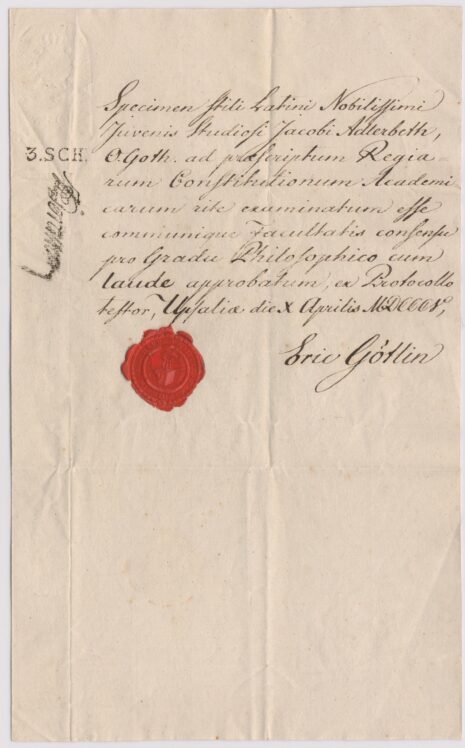 Specimen stili Latini Nobilissimi
Juvenis Studiosi Jacobi Adlerbeth,
O.Goth. ad præscriptum Regia-
rum Constitutionum Academi
carum rite examinatum esse
communique Facultatis consensu
pro Gradu Philosophico cum
laude approbatum, ex Protocollo
testor, Upsaliæ die X Aprilis MDCCCV,
Eric Götlin
3.SCH.